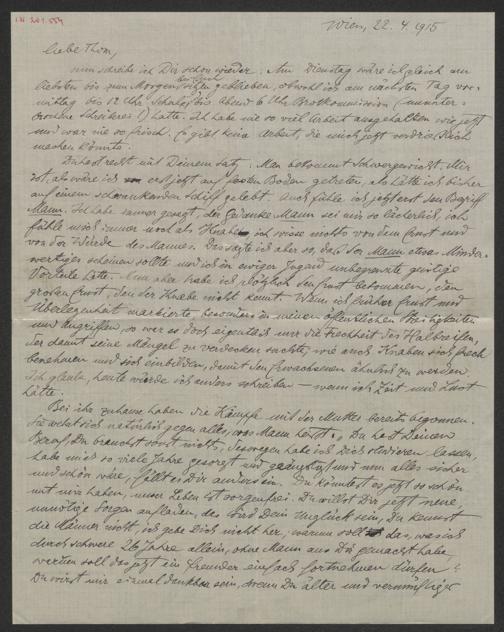 I.N. 201.554
Wien, 22. 4. 1915
Liebe Thom,
nun schreibe ich Dir schon wieder. Am Dienstag wäre ich gleich am
liebsten bis zum Morgen sitzen geblieben, obwohl ich am nächsten Tag vor-
mittag bis 12 Uhr Schule, bis Abend 6 Uhr Brotkommission
hatte. Ich habe nie so viel Arbeit ausgehalten wie jetzt
und war nie so frisch. Es gibt keine Arbeit, die mich jetzt verdrießlich
machen könnte.
Du hast recht mit Deinem Satz: Man bekommt Schwergewicht. Mir
ist, als wäre ich erst jetzt auf festen Boden getreten, als hätte ich bisher
auf einem schwankenden Schiff gelebt. Auch fühle ich jetzt erst den Begriff
Mann. Ich habe immer gesagt, der Gedanke Mann sei mir so lächerlich, ich
fühle mich immer noch als Knabe, ich wisse nichts von dem Ernst und
von der Würde des Mannes. Das sagte ich aber so, daß der Mann etwas Minder-
wertiger scheinen sollte und ich in ewiger Jugend unbegrenzte geistige
Vorteile hätte. Nun aber habe ich plötzlich den Ernst bekommen, den
großen Ernst, den der Knabe nicht kennt. Wenn ich früher Ernst und
Überlegenheit markierte, besonders in meinen öffentlichen Streitigkeiten
und Angriffen, so war es doch eigentlich nur die Frechheit des Halbreifen,
der damit seine Mängel zu verdecken suchte, wie auch Knaben sich frech
benehmen und sich einbilden, damit den Erwachsenen ähnlich zu werden.
Ich glaube, heute würde ich anders schreiben – wenn ich Zeit und Lust
hätte.
Bei ihr zuhause haben die Kämpfe mit der Mutter bereits begonnen.
Sie wehrt sich natürlich gegen alles, was Mann heißt. „Du hast Deinen
Beruf, Du brauchst sonst nichts, deswegen habe ich Dich studieren lassen,
habe mich so viele Jahre gesorgt und geängstigt und nun alles sicher
und schön wäre, fällt es Dir anders ein. Du könntest es jetzt so schön
mit mir haben, unser Leben ist sorgenfrei. Du willst Dir jetzt neue,
unnötige Sorgen aufladen, das wird Dein Unglück sein, Du kennst
die Männer nicht, ich gebe Dich nicht her, warum soll das, was ich
durch schwere 26 Jahre allein, ohne Mann aus Dir gemacht habe,
warum soll das jetzt ein Fremder einfach fortnehmen dürfen?
Du wirst mir einmal dankbar sein, wenn Du älter und vernünftiger